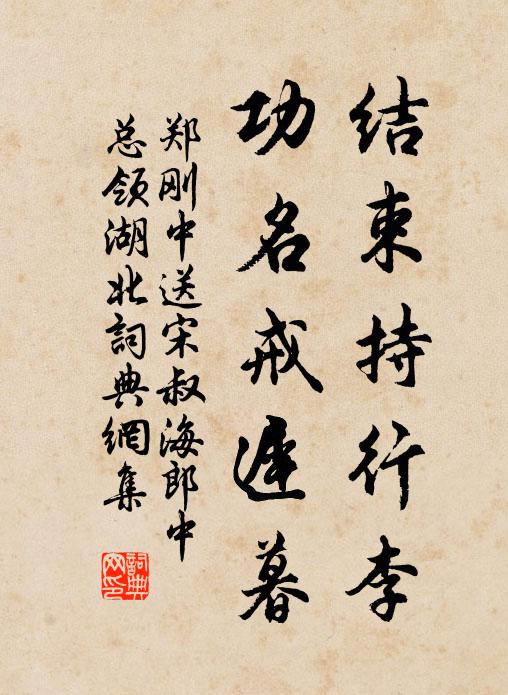 结束持行李
功名戒遲暮
郑刚中送宋叔海郎中
总领湖北詞典網集
詞典
网印